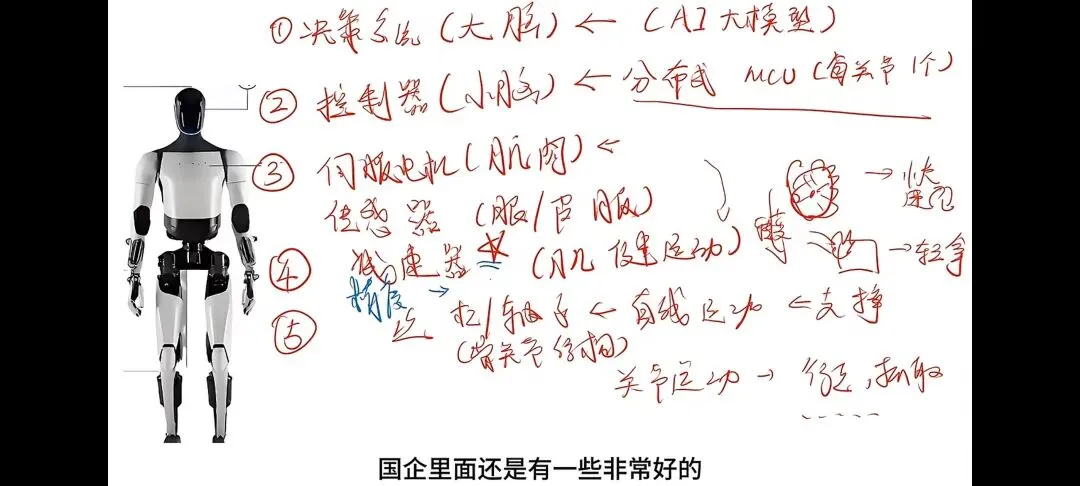 ① 决策系统(大脑) ← (AI大模型)
② 控制器(小脑) ← 分布式 MCU(每关节1个)
③ 伺服电机(肌肉) ←
传感器 (眼/皮肤)
→
④ 减速器 ★ (
运动)
→ 轻拿
精度 →
⑤ 丝杠/轴承 ← 直线运动 ← 支撑
(骨关节结构)
关节运动 → 行走,抓取
国企里面还是有一些非常好的